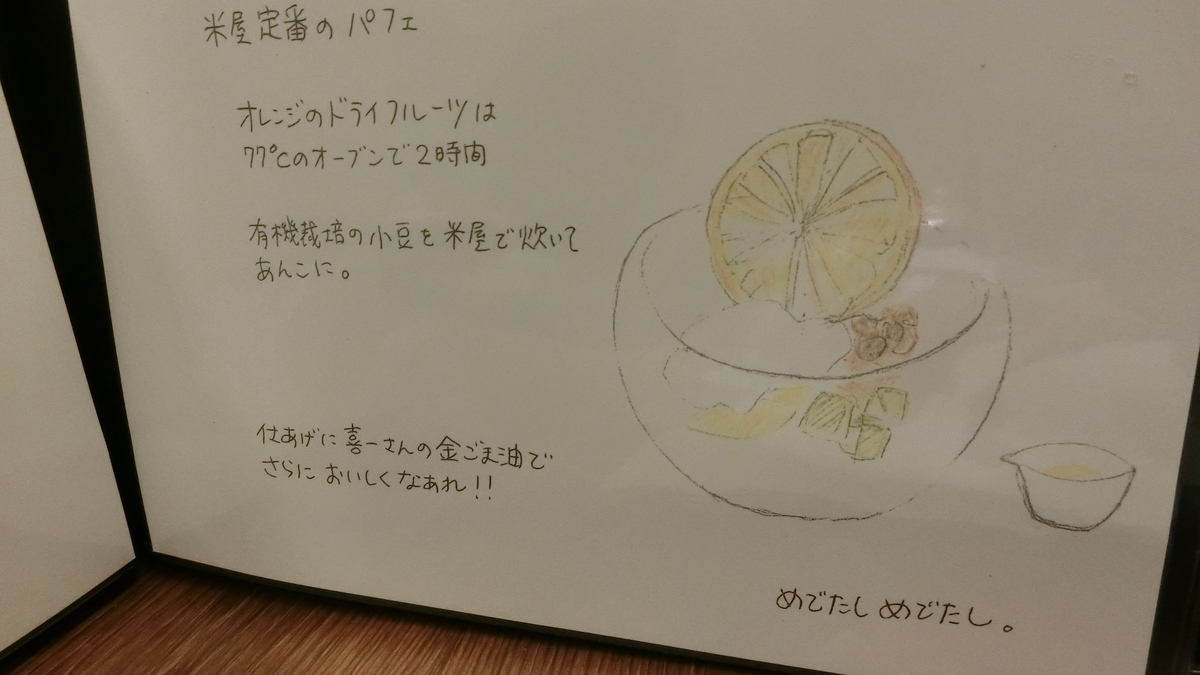 米屋定番のパフェ
オレンジのドライフルーツは
77℃のオーブンで2時間
有機栽培の小豆を米屋で炊いて
あんこに。
仕あげに喜一さんの金ごま油で
さらにおいしくなあれ!!
めでたしめでたし。